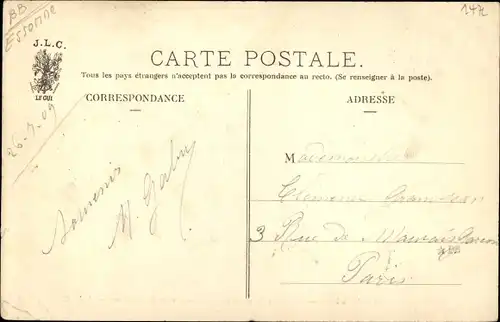 BB
Essonne
247L
J.L.C.
LE GUI
CARTE POSTALE.
Tous les pays étrangers n'acceptent pas la correspondance au recto. (Se renseigner à la poste).
CORRESPONDANCE
ADRESSE
Souvenir
Mademoiselle
3 Rue de Mauvais Garçons
Paris